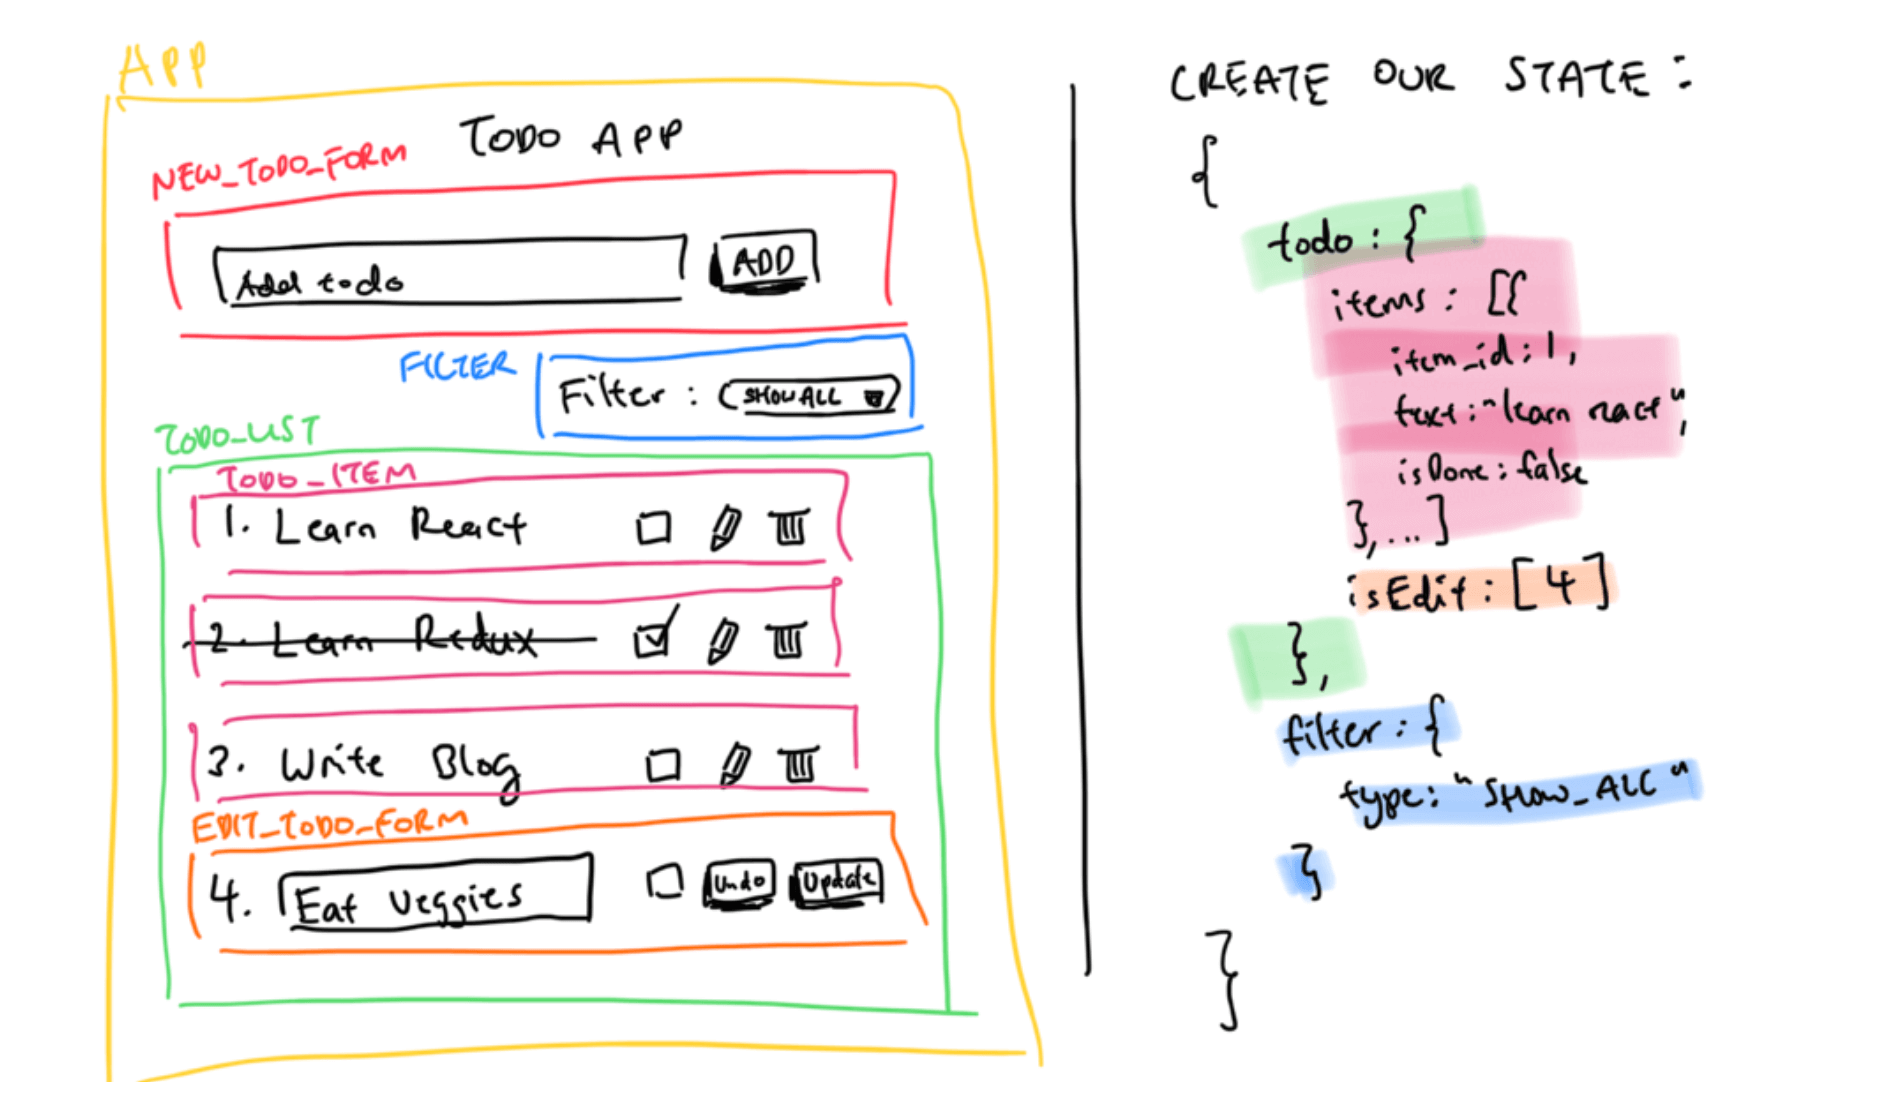 APP
TODO APP
NEW_TODO_FORM
Add todo
ADD
FILTER
Filter : SHOW ALL
TODO_LIST
TODO_ITEM
1. Learn React
2. Learn Redux
3. Write Blog
EDIT_TODO_FORM
4. Eat Veggies
Undo
Update
CREATE OUR STATE :
{
todo : {
items : [{
item_id : 1,
text : "learn react",
isDone : false
}, ... ]
isEdit : [4]
},
filter : {
type : "SHOW_ALL"
}
}